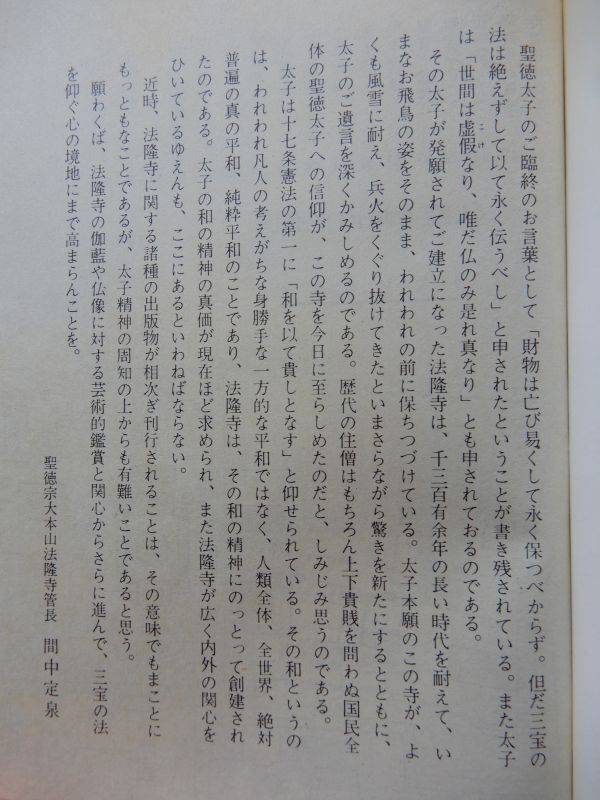 聖徳太子のご臨終のお言葉として「財物は亡び易くして永く保つべからず。但だ三宝の
法は絶えずして以て永く伝うべし」と申されたということが書き残されている。また太子
は「世間は虚假なり、唯だ仏のみ是れ真なり」とも申されておるのである。
こけ
その太子が発願されてご建立になった法隆寺は、千三百有余年の長い時代を耐えて、い
まなお飛鳥の姿をそのまま、われわれの前に保ちつづけている。太子本願のこの寺が、よ
くも風雪に耐え、兵火をくぐり抜けてきたといまさらながら驚きを新たにするとともに、
太子のご遺言を深くかみしめるのである。歴代の住僧はもちろん上下貴賤を問わぬ国民全
体の聖徳太子への信仰が、この寺を今日に至らしめたのだと、しみじみ思うのである。
太子は十七条憲法の第一に「和を以て貴しとなす」と仰せられている。その和というの
は、われわれ凡人の考えがちな身勝手な一方的な平和ではなく、人類全体、全世界、絶対
普遍の真の平和、純粋平和のことであり、法隆寺は、その和の精神にのっとって創建され
たのである。太子の和の精神の真価が現在ほど求められ、また法隆寺が広く内外の関心を
ひいているゆえんも、ここにあるといわねばならない。
近時、法隆寺に関する諸種の出版物が相次ぎ刊行されることは、その意味でもまことに
もっともなことであるが、太子精神の周知の上からも有難いことであると思う。
願わくば、法隆寺の伽藍や仏像に対する芸術的鑑賞と関心からさらに進んで、三宝の法
を仰ぐ心の境地にまで高まらんことを。
聖徳宗大本山法隆寺管長 間中定泉